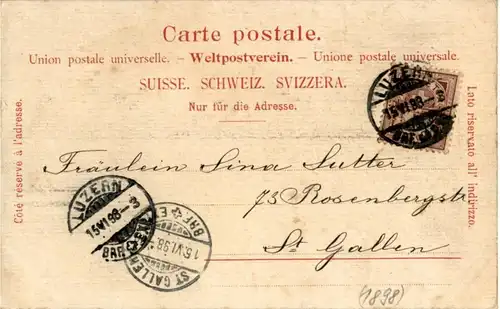 Carte postale.
Union postale universelle. – Weltpostverein. – Unione postale universale.
SUISSE. SCHWEIZ. SVIZZERA.
Nur für die Adresse.
Côté réservé à l'adresse.
Lato riservato all' indirizzo.
LUZERN
15.VI.98
BRF.
Fräulein Lina Sutter
73 Rosenbergstr
St. Gallen
LUZERN
15.VI.98–8
BRF. EXP.
ST GALLEN
15.VI.98
BRF
(1898)